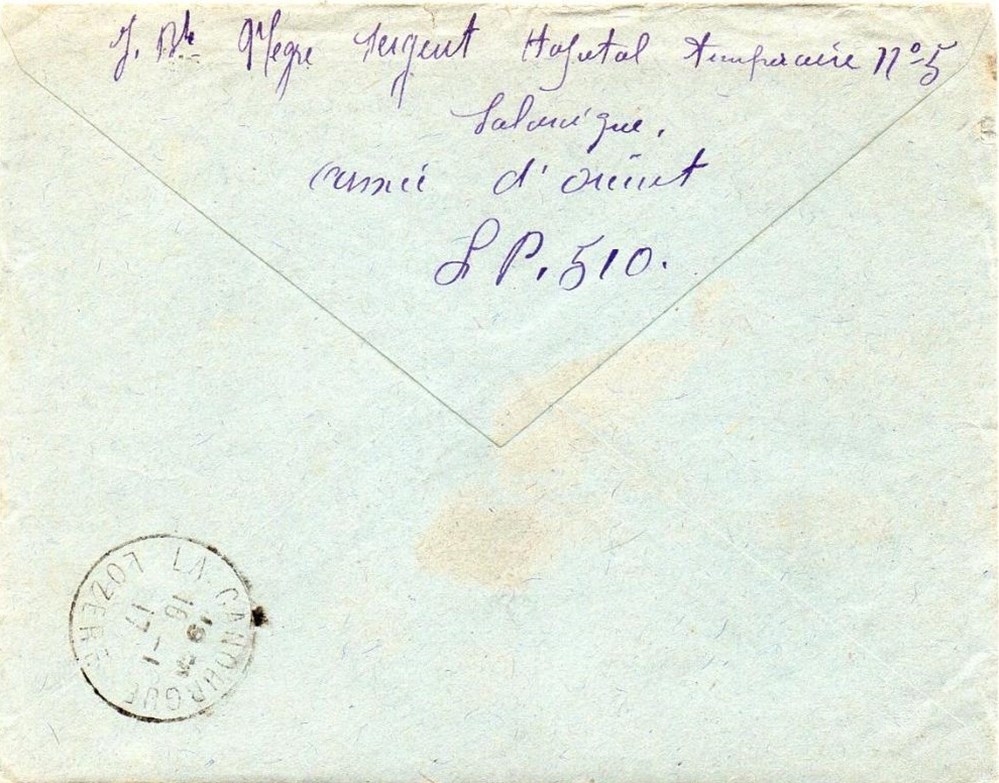 J. Bte Mègre sergent Hopital temporaire N° 5
Salonique.
armée d'orient
S P. 510.
LA CANOURGUE
LOZERE
16 - 1
17